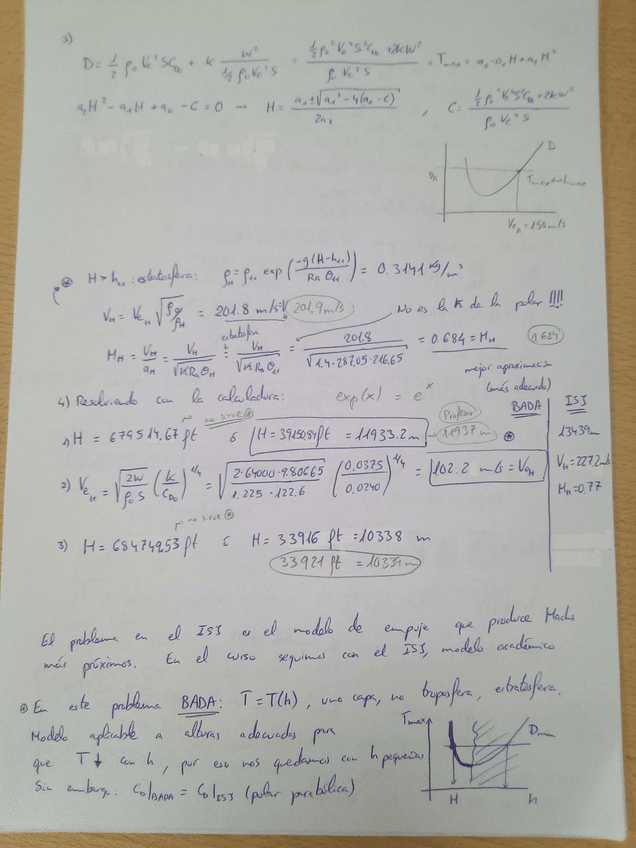 3)
D = 1/2 ρ₀ Ve² S C_D0 + K W²/(1/2 ρ₀ Ve² S) = (1/2 ρ₀² Ve⁴ S² C_D0 + 2KW²)/(ρ₀ Ve² S) = Tmax = a₀ - a₁H + a₂H²
a₂H² - a₁H + a₀ - C = 0 → H = (a₁ ± √(a₁² - 4(a₀ - C)))/(2a₂) , C = (1/2 ρ₀² Ve⁴ S² C_D0 + 2KW²)/(ρ₀ Ve² S)
D
Ve_H = 150 m/s
⊛ H > h₁₁ : estratosfera: ρ_H = ρ₁₁ exp(-g(H-h₁₁)/(Ra Θ₁₁)) = 0.3141 kg/m³
V_H = Ve_H √(ρ₀/ρ_H) = 201.8 m/s = V_H 201,9 m/s
No es la K de la polar !!!!
estratosfera
M_H = V_H/a_H = V_H/√(K Ra Θ_H) = V_H/√(K Ra Θ₁₁) = 201.8/√(1.4·287.05·216.65) = 0.684 = M_H 0.624
mejor aproximación
(más adecuado)
4) Resolviendo con la calculadora: exp(x) = eˣ
BADA ISJ
no sirve ⊛ Profesor
1) H = 679514.67 ft ó H = 39150.84 ft = 11933.2 m → 11937 m ⊛
13439 m
V_H = 227.2 m/s
M_H = 0.77
2) Ve_H = √(2W/(ρ₀ S)) (K/C_D0)^1/4 = √(2·64000·9.80665/(1.225·122.6)) (0.0375/0.0240)^1/4 = 102.2 m/s = Ve_H
no sirve ⊛
3) H = 684749.53 ft ó H = 33916 ft = 10338 m
33921 ft = 10339 m
El problema en el ISJ es el modelo de empuje que produce Machs
más próximos. En el curso seguimos con el ISJ, modelo académico
⊛ En este problema BADA: T = T(h), una capa, no troposfera, estratosfera.
Modelo aplicable a alturas adecuadas para
que T ↓ con h, por eso nos quedamos con h pequeñas
Sin embargo: C_D|BADA = C_D|ISJ (polar parabólica)
Tmax
Dmin
H h